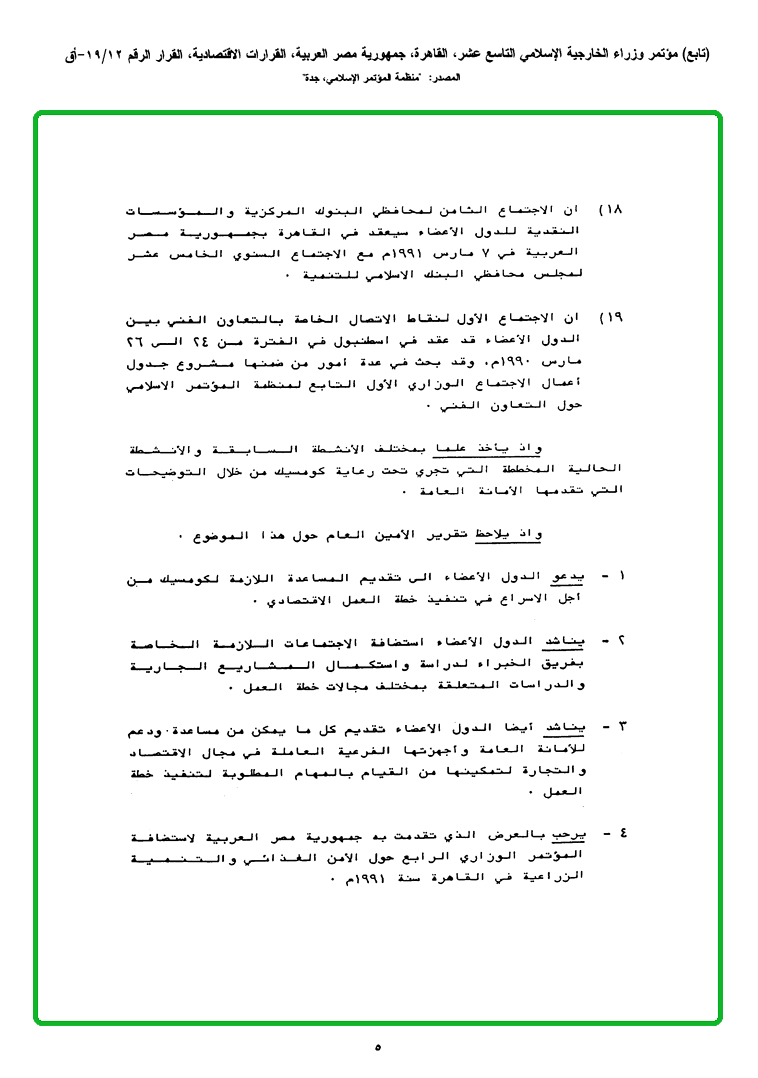 (تابع) مؤتمر وزراء الخارجية الإسلامي التاسع عشر، القاهرة، جمهورية مصر العربية، القرارات الاقتصادية، القرار الرقم ١٩/١٢-أق
المصدر: "منظمة المؤتمر الإسلامي، جدة"
١٨) ان الاجتماع الثامن لمحافظي البنوك المركزية والمؤسسات
النقدية للدول الأعضاء سيعقد في القاهرة بجمهورية مصر
العربية في ٧ مارس ١٩٩١م مع الاجتماع السنوي الخامس عشر
لمجلس محافظي البنك الاسلامي للتنمية ٠
١٩) ان الاجتماع الأول لنقاط الاتصال الخاصة بالتعاون الفني بين
الدول الأعضاء قد عقد في اسطنبول في الفترة من ٢٤ الى ٢٦
مارس ١٩٩٠م، وقد بحث في عدة أمور من ضمنها مشروع جدول
أعمال الاجتماع الوزاري الأول التابع لمنظمة المؤتمر الاسلامي
حول التعاون الفني ٠
واذ يأخذ علما بمختلف الأنشطة السابقة والأنشطة
الحالية المخططة التي تجري تحت رعاية كومسيك من خلال التوضيحات
التي تقدمها الأمانة العامة ٠
واذ يلاحظ تقرير الأمين العام حول هذا الموضوع ٠
١ - يدعو الدول الأعضاء الى تقديم المساعدة اللازمة لكومسيك من
أجل الاسراع في تنفيذ خطة العمل الاقتصادي ٠
٢ - يناشد الدول الأعضاء استضافة الاجتماعات اللازمة الخاصة
بفريق الخبراء لدراسة واستكمال المشاريع الجارية
والدراسات المتعلقة بمختلف مجالات خطة العمل ٠
٣ - يناشد أيضا الدول الأعضاء تقديم كل ما يمكن من مساعدة ودعم
للأمانة العامة وأجهزتها الفرعية العاملة في مجال الاقتصاد
والتجارة لتمكينها من القيام بالمهام المطلوبة لتنفيذ خطة
العمل ٠
٤ - يرحب بالعرض الذي تقدمت به جمهورية مصر العربية لاستضافة
المؤتمر الوزاري الرابع حول الأمن الغذائي والتنمية
الزراعية في القاهرة سنة ١٩٩١م ٠
٥